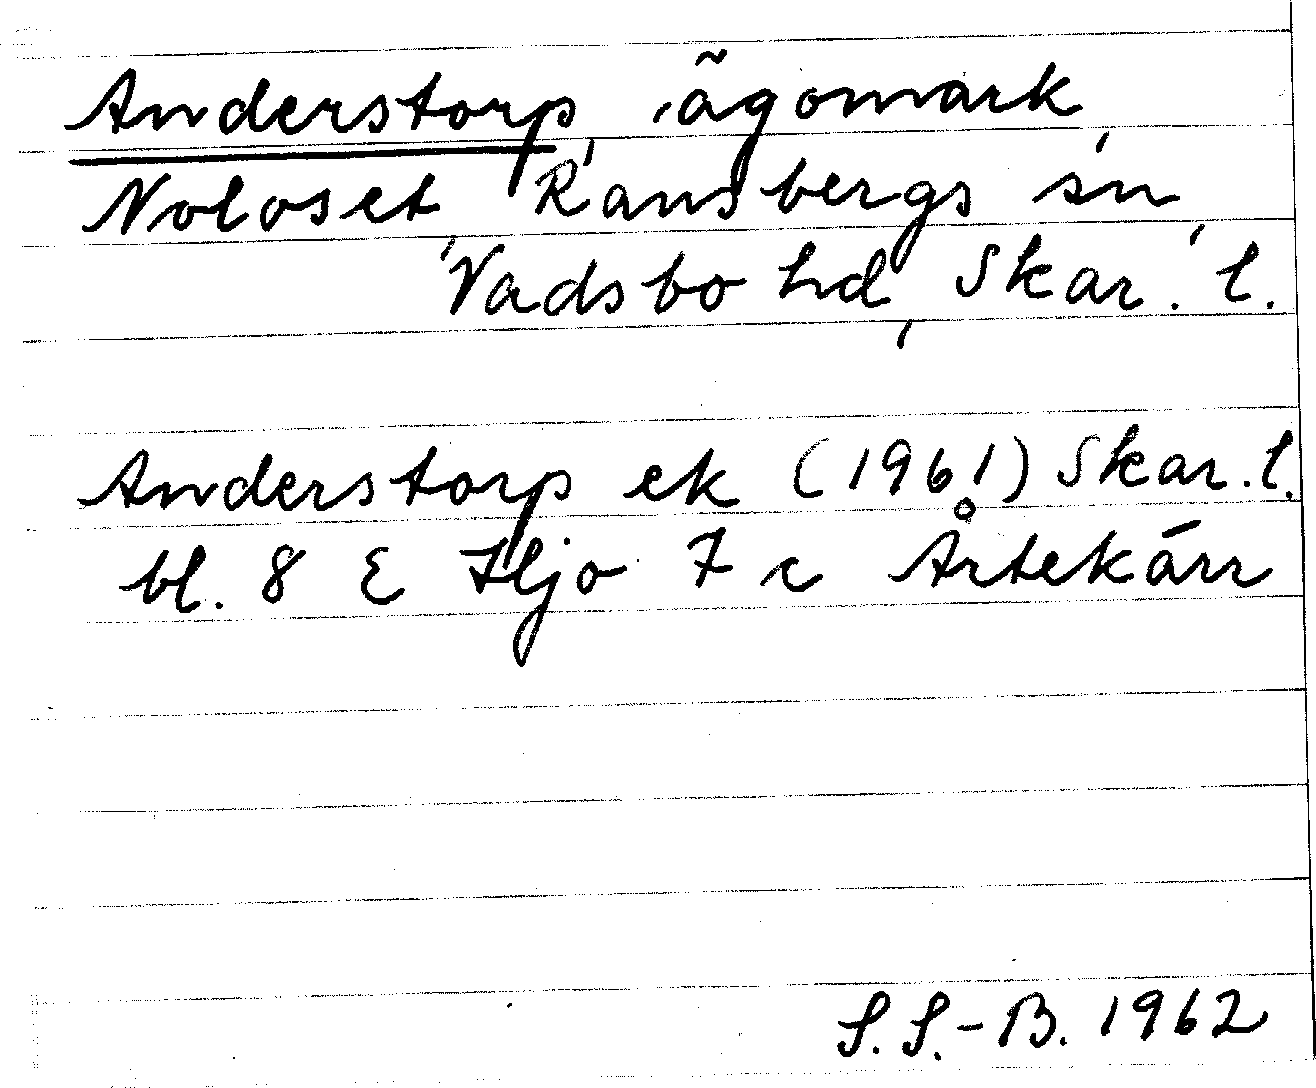 Anderstorp, ägomark,
Noloset, Ransbergs sn,
Vadsbo hd, Skar. l.
Anderstorp ek (1961) Skar. l.
bl. 8 E Hjo 7 c Årtekärr
S. S.-B. 1962